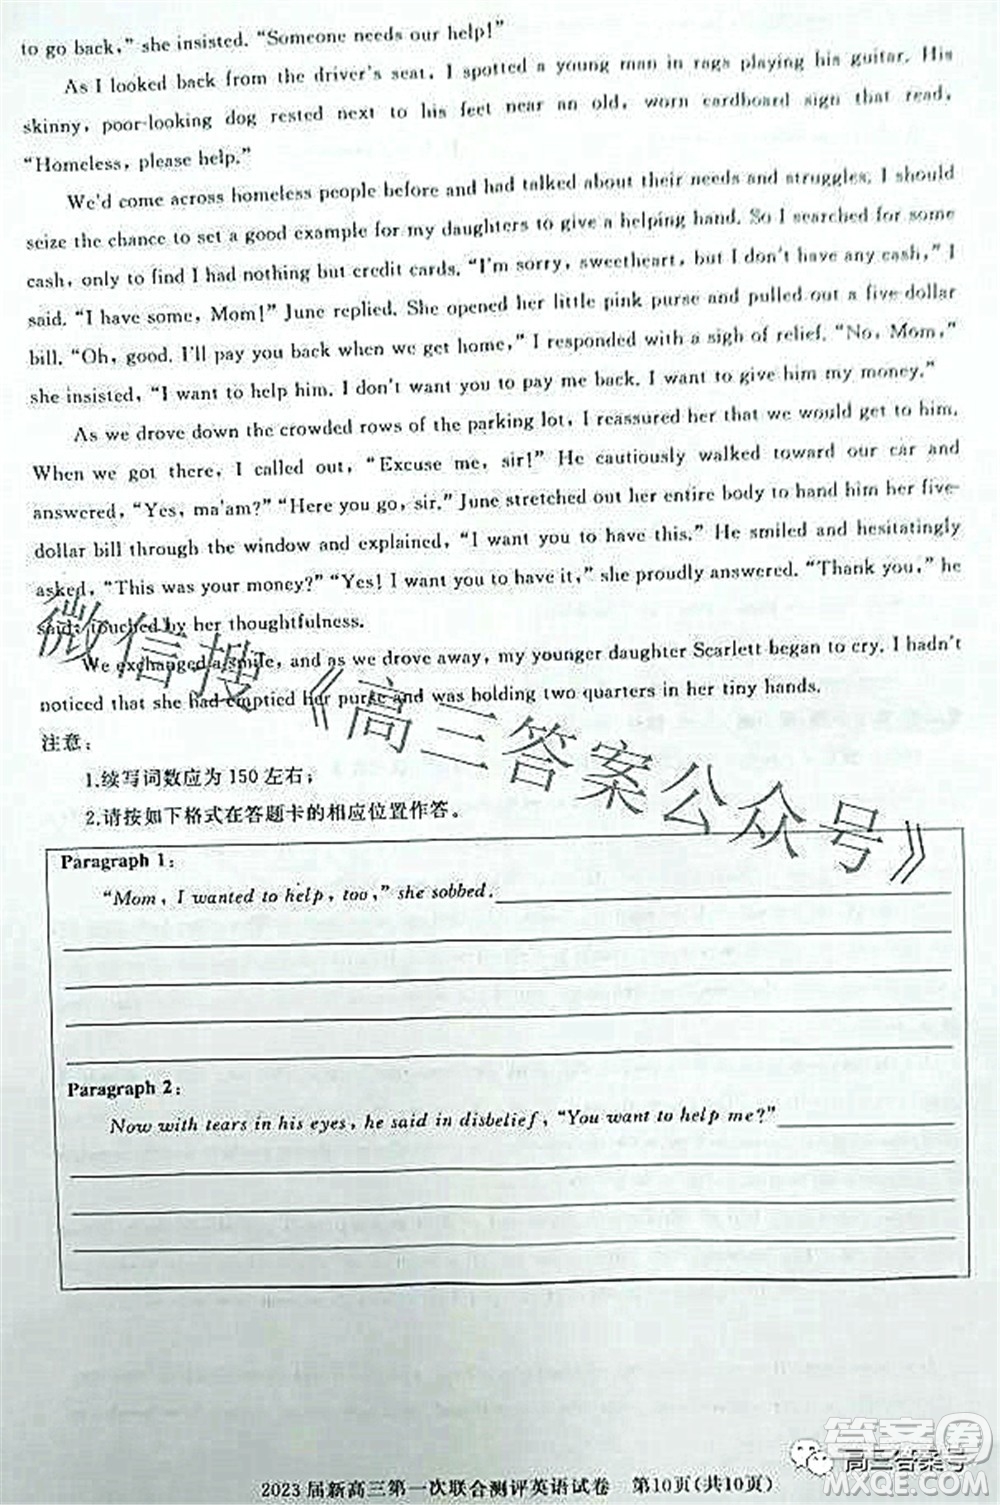 to go back," she insisted. "Someone needs our help!"
As I looked back from the driver's seat, I spotted a young man in rags playing his guitar. His
skinny, poor-looking dog rested next to his feet near an old, worn cardboard sign that read,
"Homeless, please help."
We'd come across homeless people before and had talked about their needs and struggles. I should
seize the chance to set a good example for my daughters to give a helping hand. So I searched for some
cash, only to find I had nothing but credit cards. "I'm sorry, sweetheart, but I don't have any cash," I
said. "I have some, Mom!" June replied. She opened her little pink purse and pulled out a five-dollar
bill. "Oh, good. I'll pay you back when we get home," I responded with a sigh of relief. "No, Mom,"
she insisted, "I want to help him. I don't want you to pay me back. I want to give him my money."
As we drove down the crowded rows of the parking lot, I reassured her that we would get to him.
When we got there, I called out, "Excuse me, sir!" He cautiously walked toward our car and
answered, "Yes, ma'am?" "Here you go, sir." June stretched out her entire body to hand him her five-
dollar bill through the window and explained, "I want you to have this." He smiled and hesitatingly
asked, "This was your money?" "Yes! I want you to have it," she proudly answered. "Thank you," he
said, touched by her thoughtfulness.
We exchanged a smile, and as we drove away, my younger daughter Scarlett began to cry. I hadn't
noticed that she had emptied her purse and was holding two quarters in her tiny hands.
微信搜《高三答案公众号》
注意：
1.续写词数应为150左右；
2.请按如下格式在答题卡的相应位置作答。
Paragraph 1:
"Mom, I wanted to help, too," she sobbed.
Paragraph 2:
Now with tears in his eyes, he said in disbelief, "You want to help me?"
答案圈
高三答案号
2023届新高三第一次联合测评英语试卷 第10页(共10页)